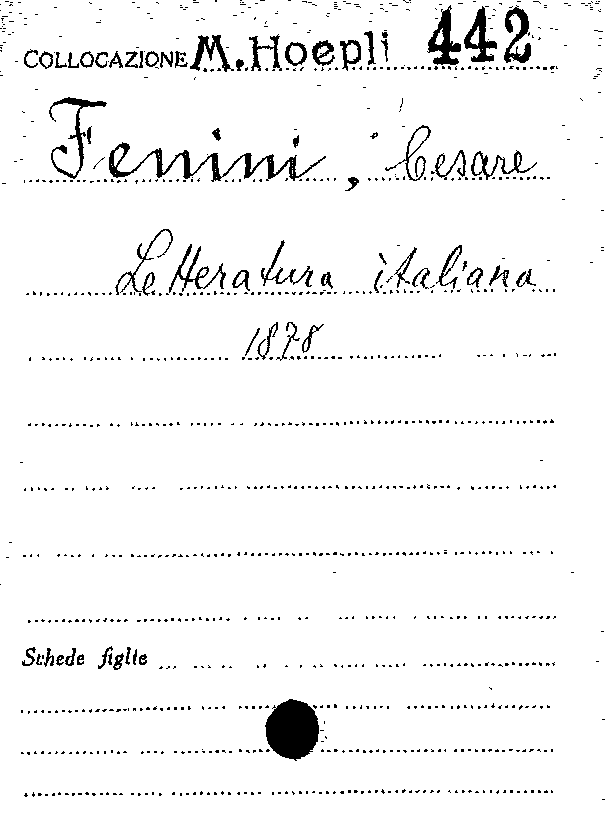 COLLOCAZIONE M. Hoepli 442
Fenini, Cesare
Letteratura italiana
1878
Schede figlie